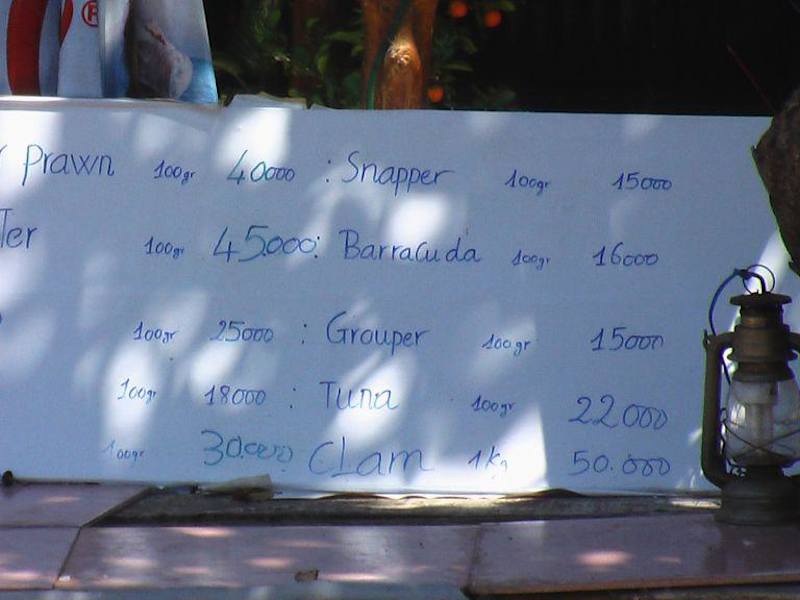 Prawn 100gr 40000 : Snapper 100gr 15000
Ter 100gr 45.000: Barracuda 100gr 16000
100gr 25000 : Grouper 100gr 15000
100gr 18000 : Tuna 100gr 22000
100gr 30.000 CLam 1kg 50.000